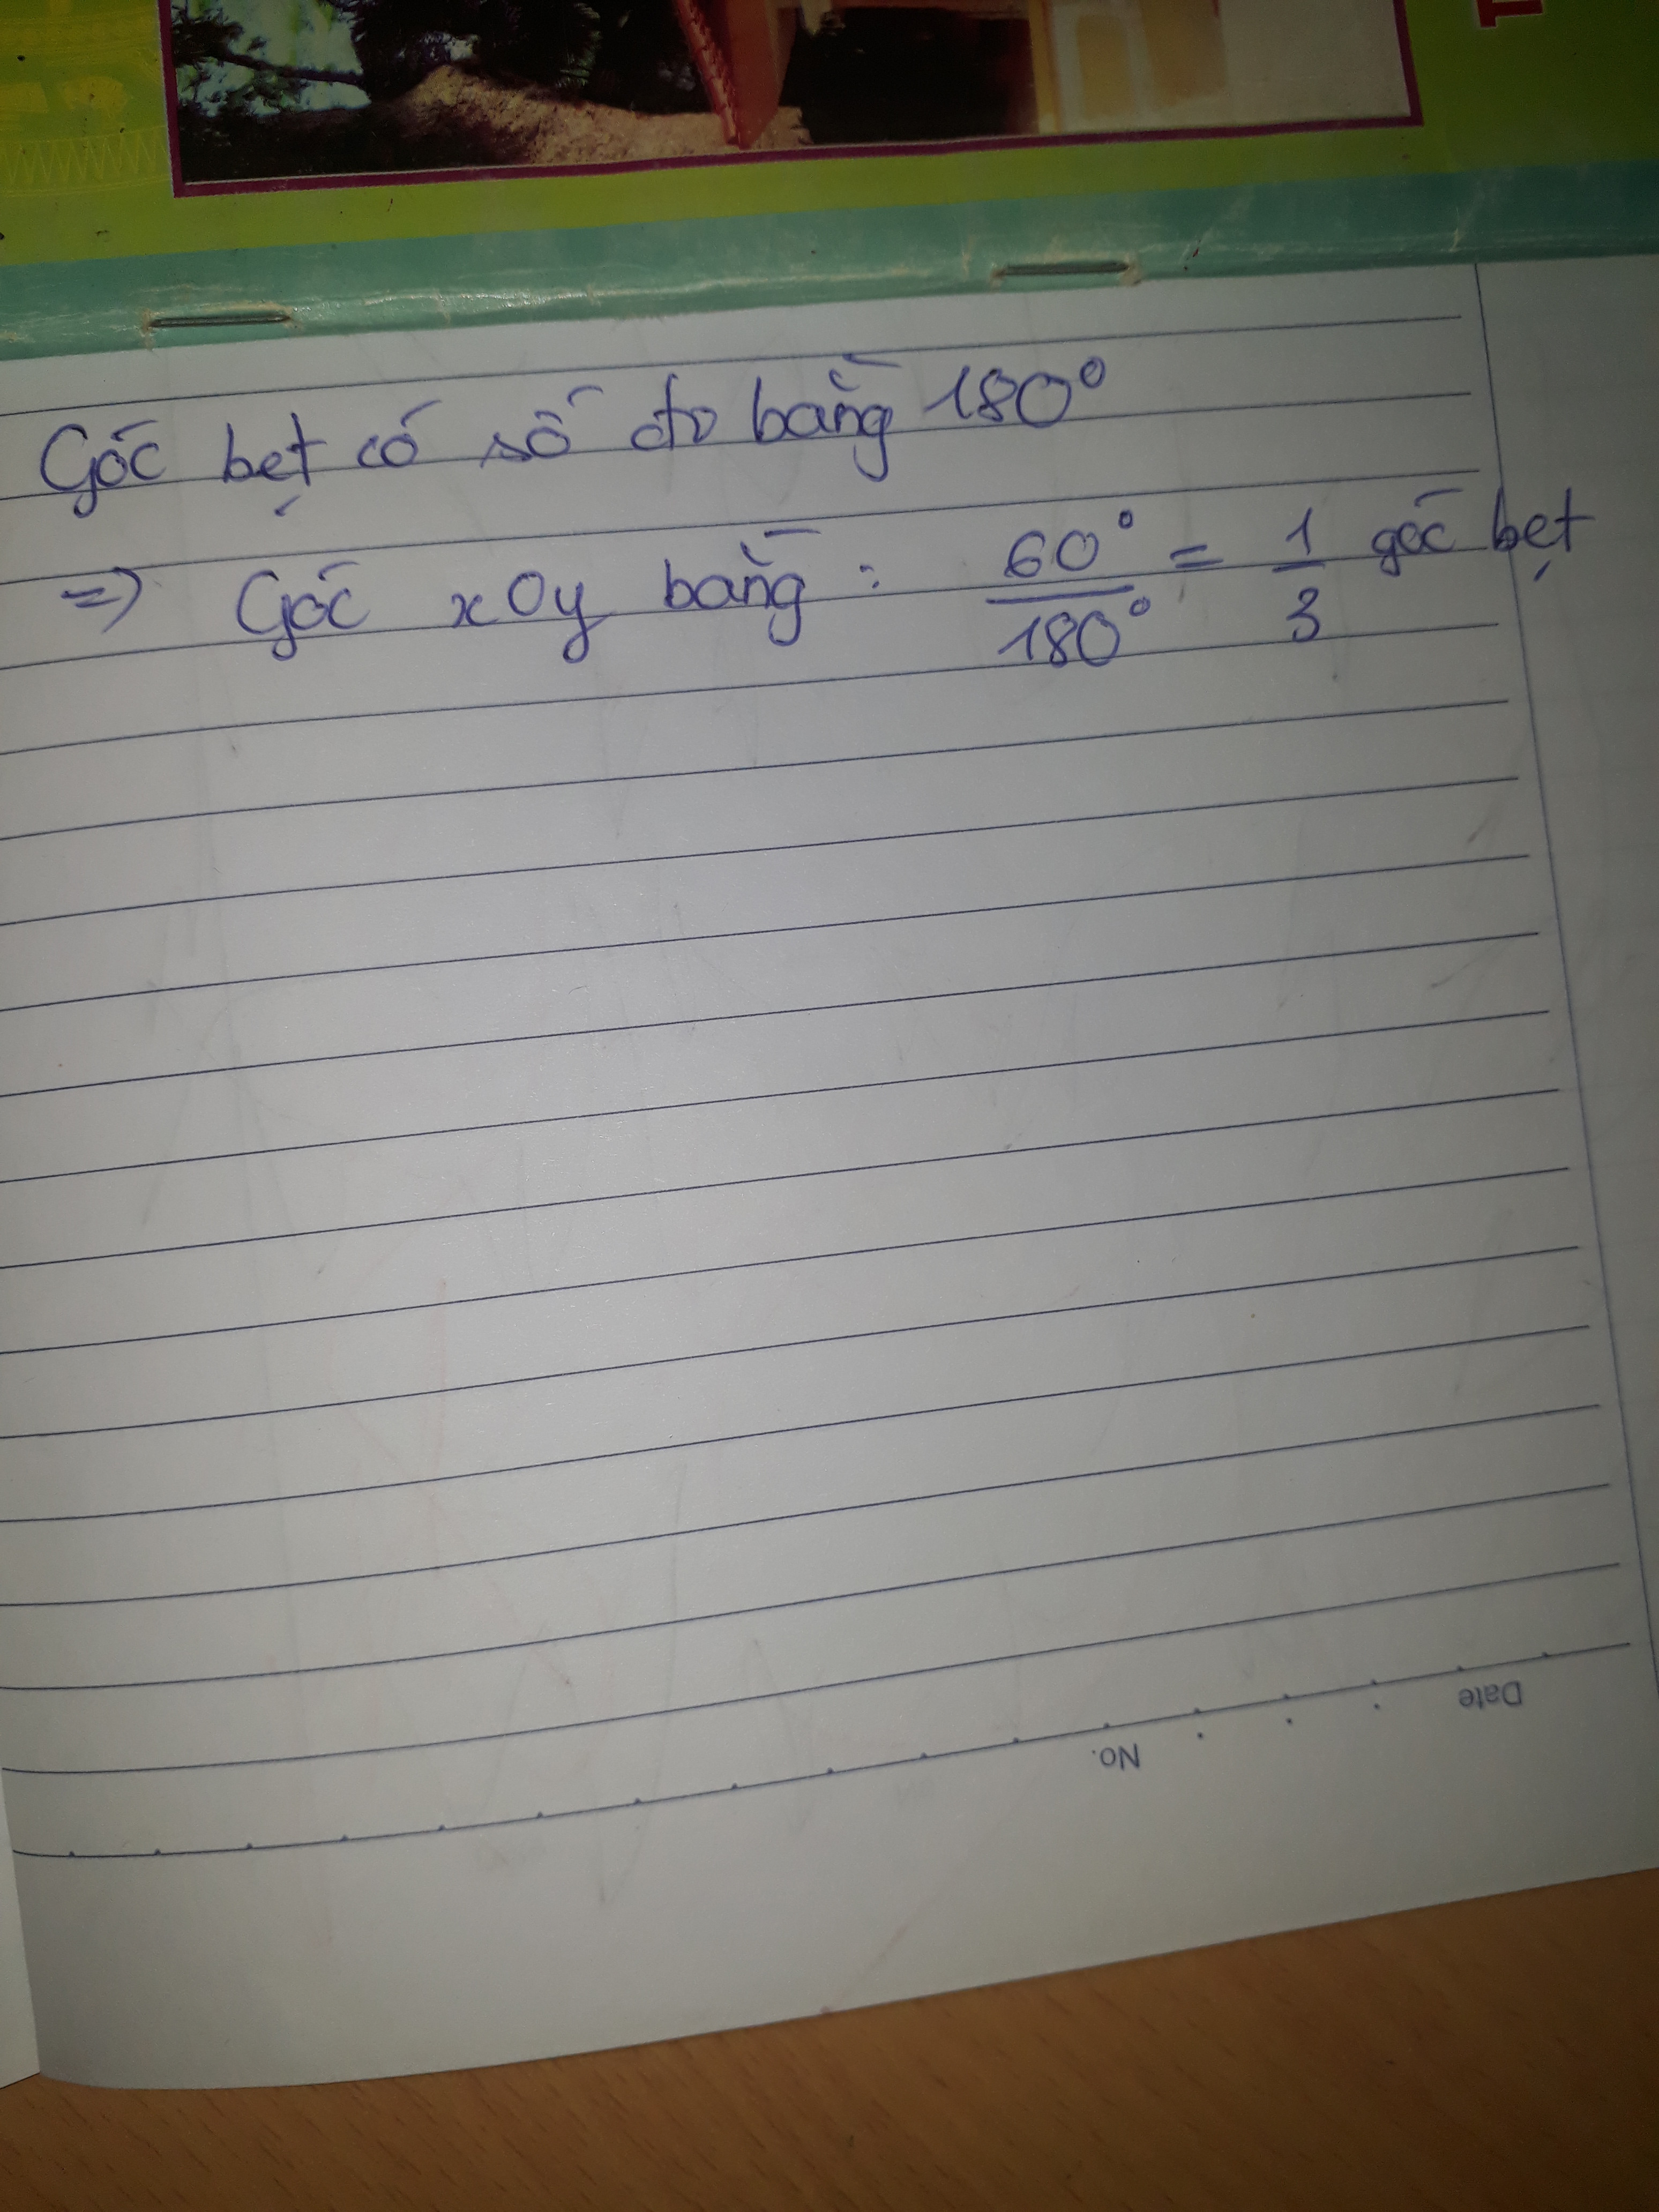 Góc bẹt có số đo bằng 180°
=> Góc xOy bằng: 60°/180° = 1/3 góc bẹt
No.
Date